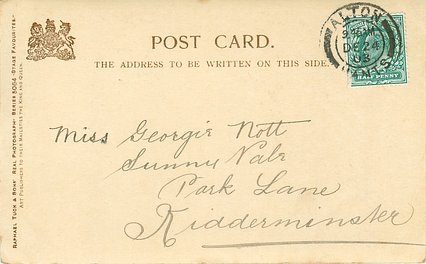 POST CARD.
THE ADDRESS TO BE WRITTEN ON THIS SIDE.
ALTON
DE 24
03
HANTS
HALF PENNY
Miss Georgie Nott
Sunny Vale
Park Lane
Kidderminster
RAPHAEL TUCK & SONS' REAL PHOTOGRAPH SERIES 5054 "STAGE FAVOURITES."
ART PUBLISHERS TO THEIR MAJESTIES THE KING AND QUEEN.